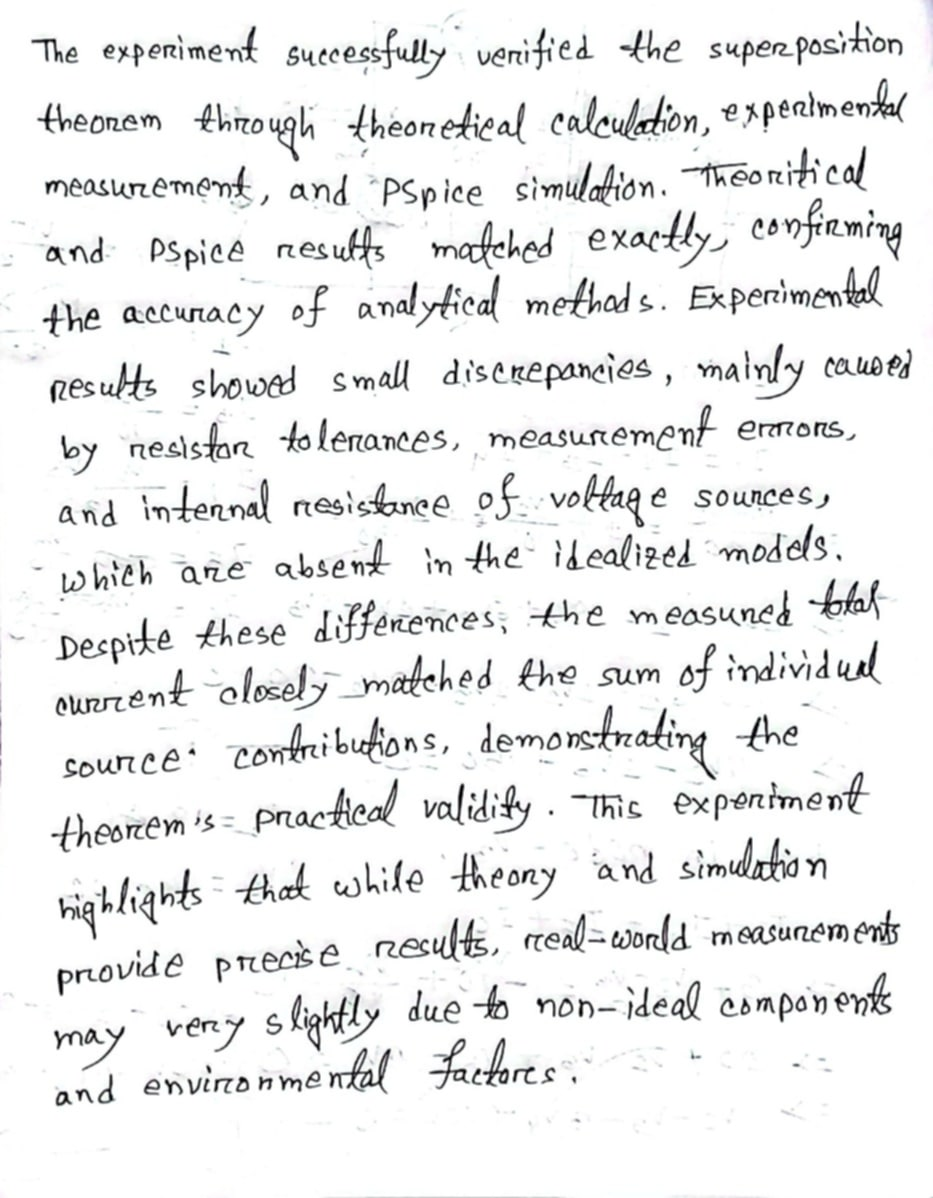 The experiment successfully verified the superposition
theorem through theoretical calculation, experimental
measurement, and PSpice simulation. Theoritical
and PSpice results matched exactly, confirming
the accuracy of analytical methods. Experimental
results showed small discrepancies, mainly caused
by resistor tolerances, measurement errors,
and internal resistance of voltage sources,
which are absent in the idealized models.
Despite these differences, the measured total
current closely matched the sum of individual
source contributions, demonstrating the
theorem's practical validity. This experiment
highlights that while theory and simulation
provide precise results, real-world measurements
may very slightly due to non-ideal components
and environmental factors.